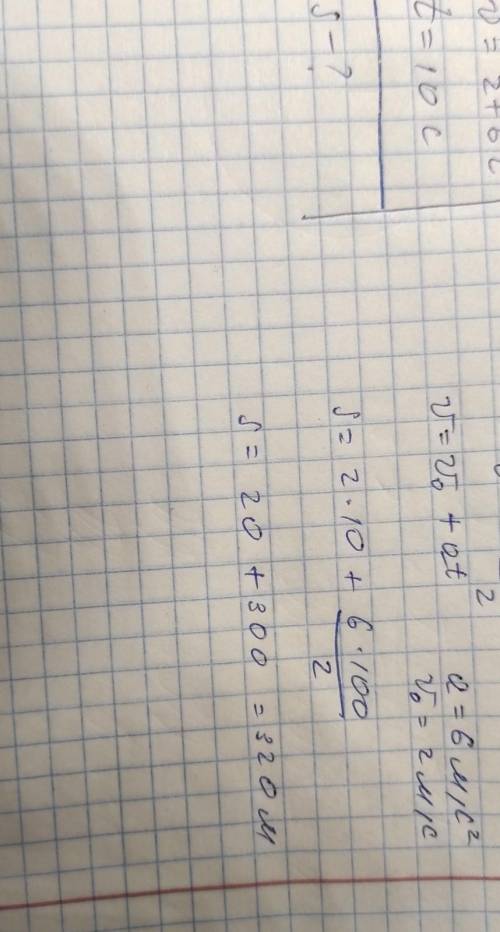 t = 10 c
S - ?
2
v = v₀ + at
a = 6 м/с²
v₀ = 2 м/с
S = 2 · 10 + 6 · 100 / 2
S = 20 + 300 = 320 м